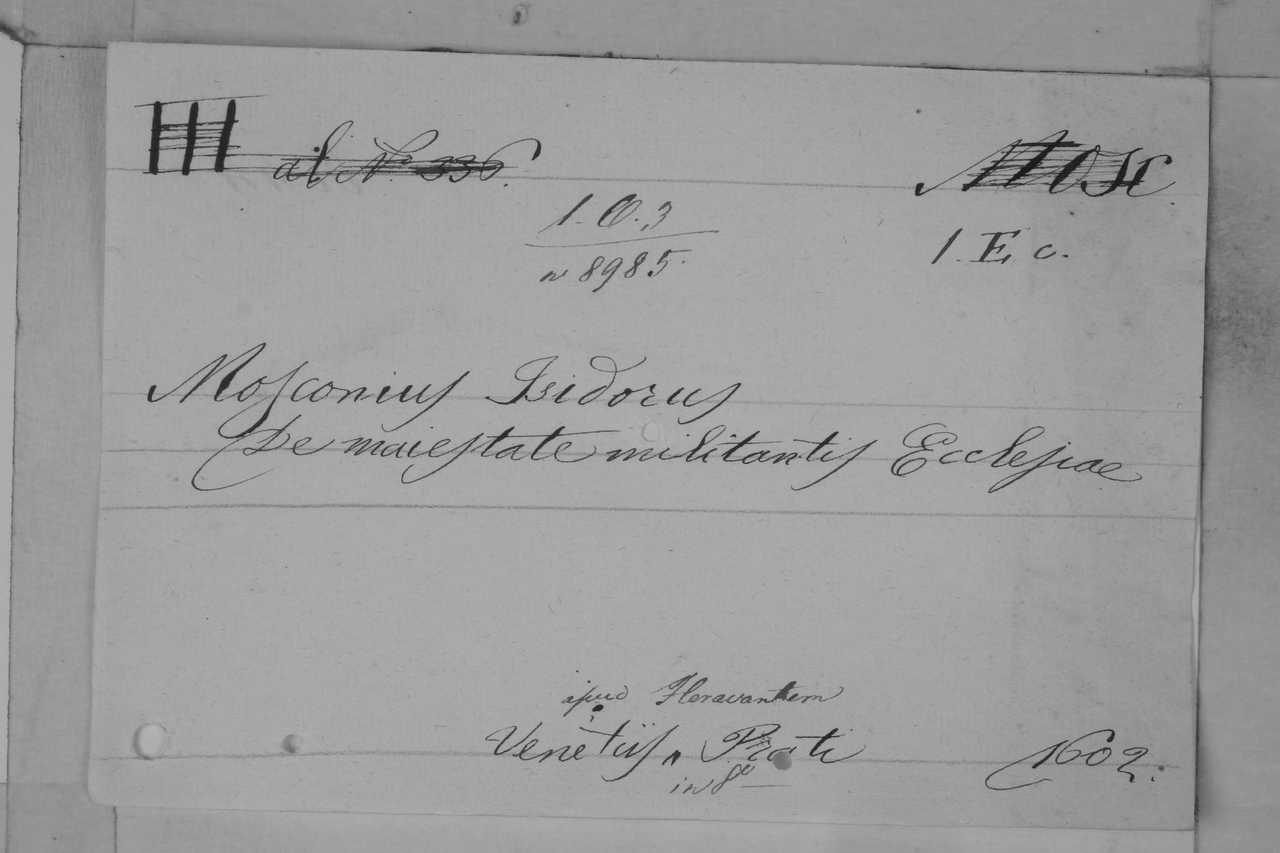 III al N.º 336. Mosc.
1. O. 3
n 8985.
1. E c.
Mosconius Isidorus
De maiestate militantis Ecclesiae
apud Floravantem
Venetiis, Prati 1602.
in 8º